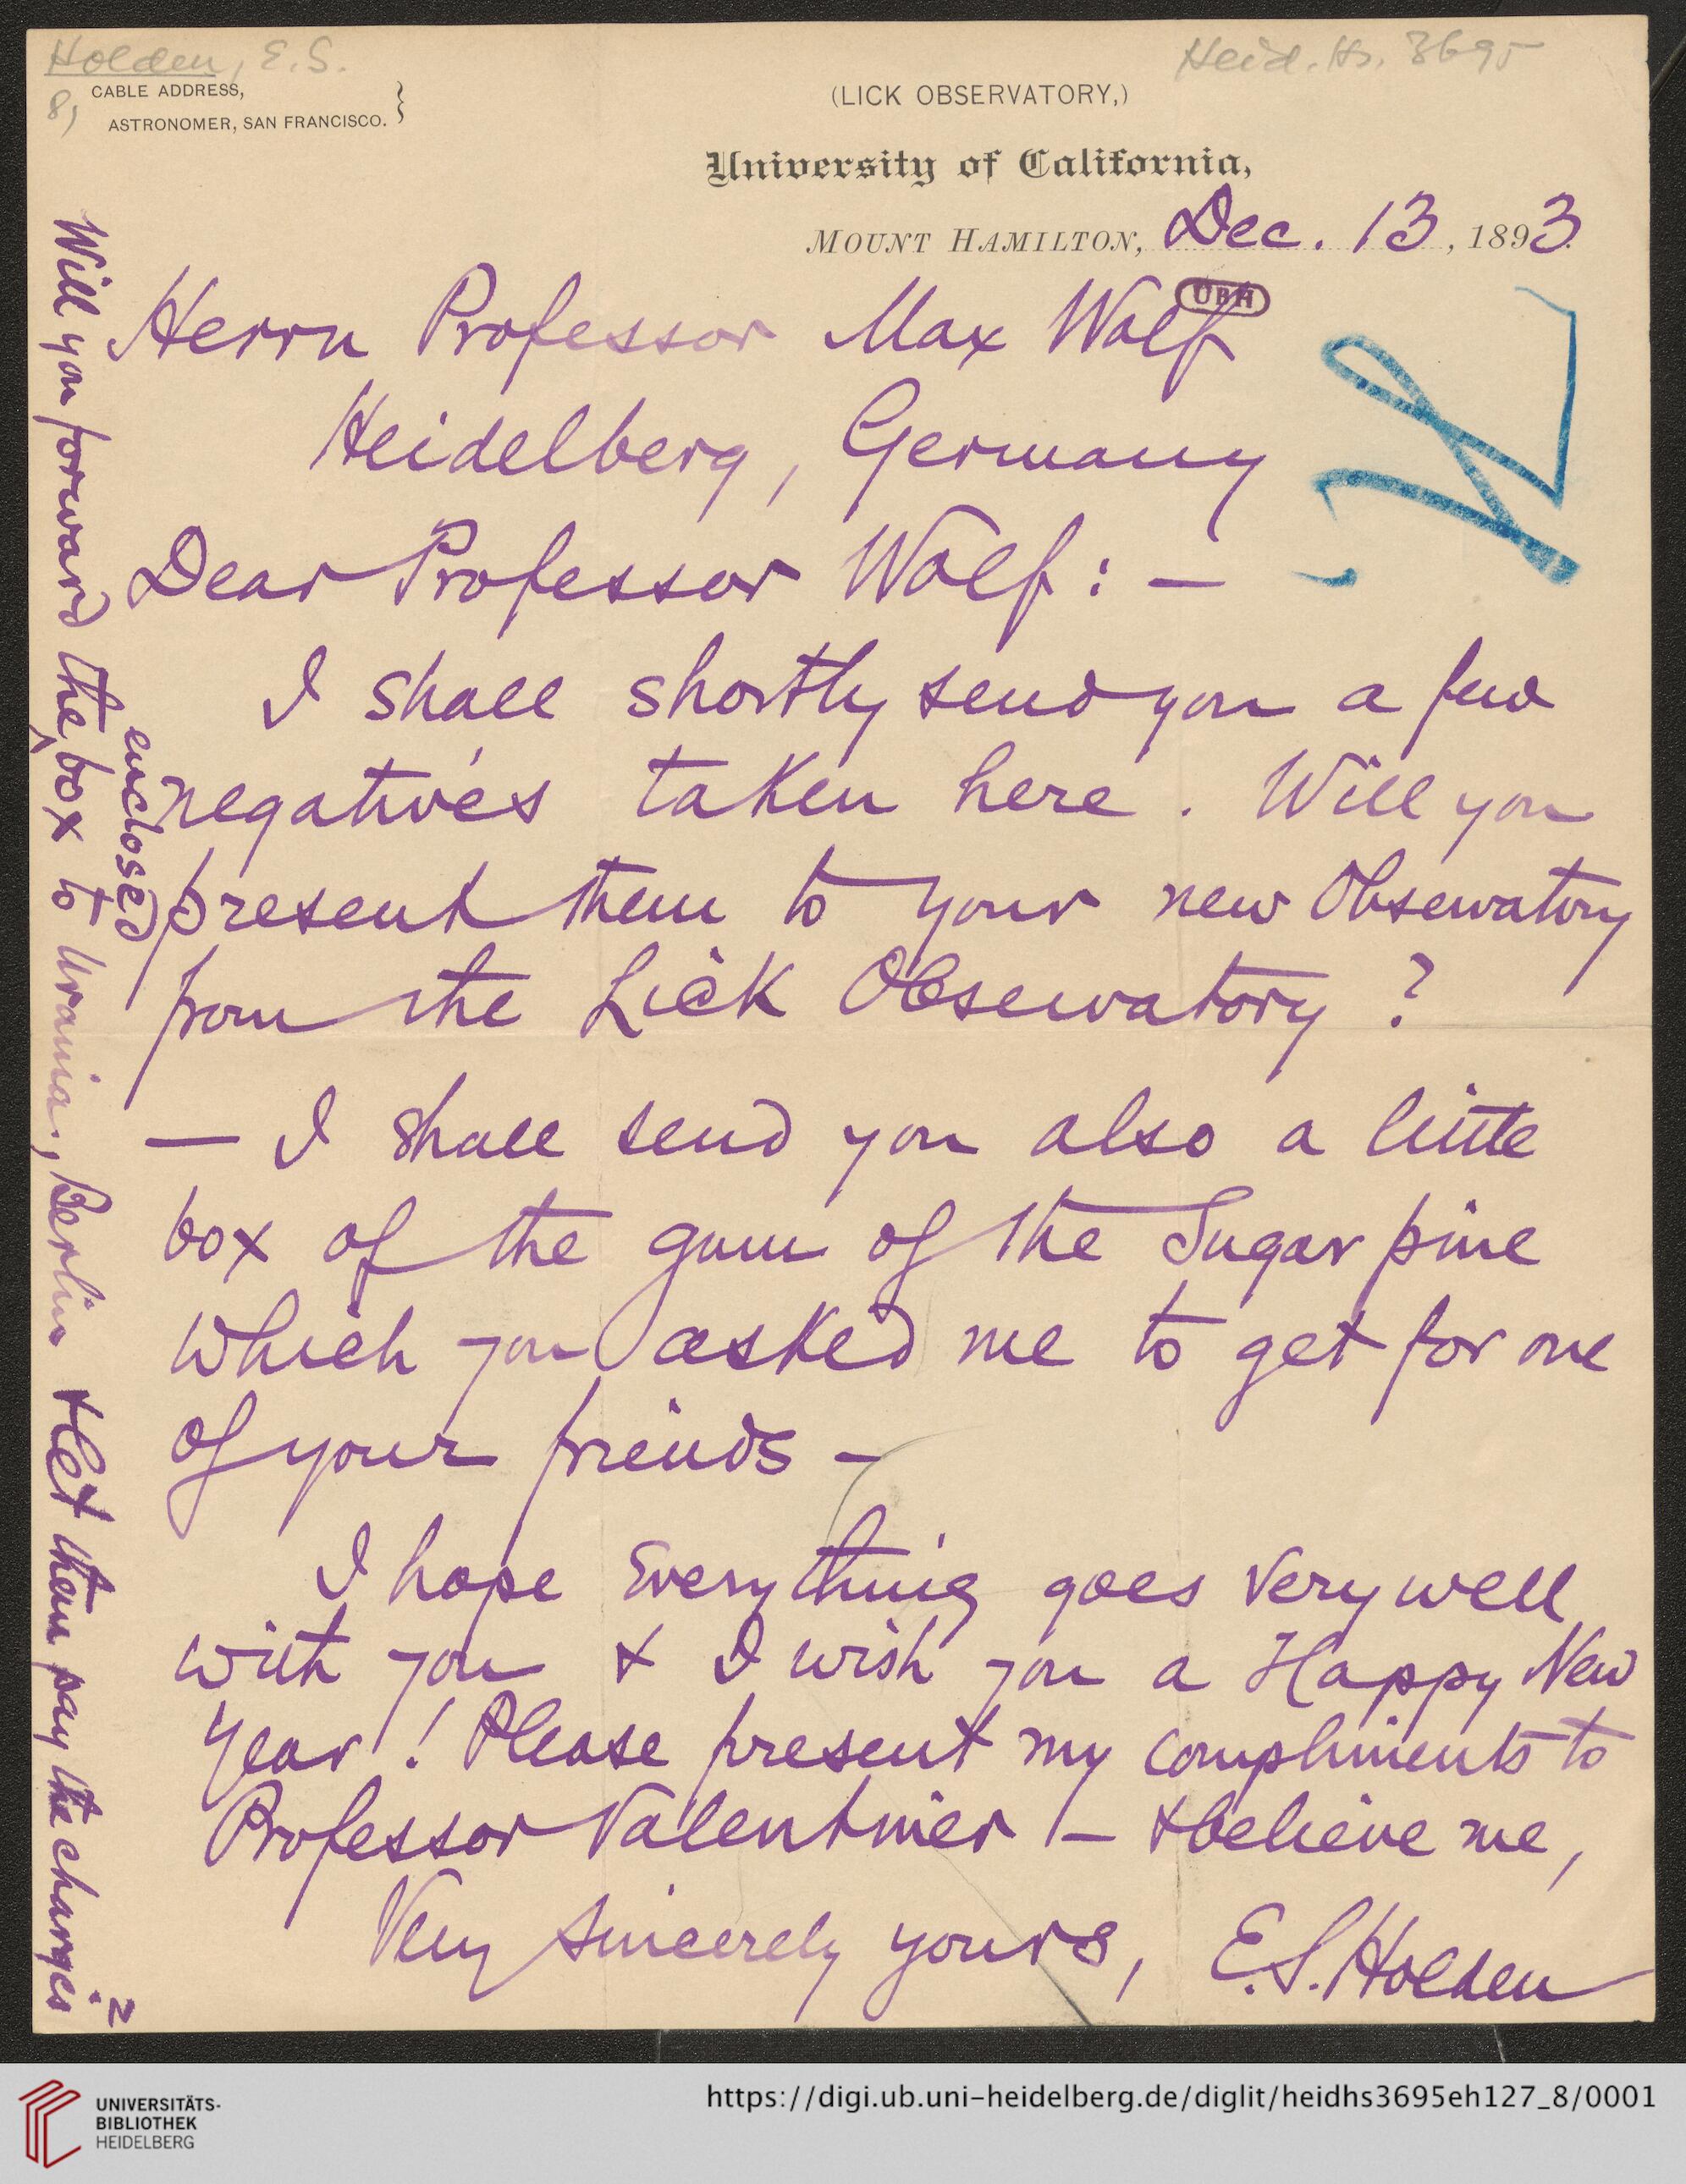 Holden, E. S.
8)
Heid. Hs. 3695
CABLE ADDRESS,
ASTRONOMER, SAN FRANCISCO.
(LICK OBSERVATORY,)
University of California,
MOUNT HAMILTON, Dec. 13, 1893.
UBH
Herrn Professor Max Wolf
Heidelberg, Germany
Dear Professor Wolf: —
I shall shortly send you a few
negatives taken here. Will you
present them to your new Observatory
from the Lick Observatory?
— I shall send you also a little
box of the gum of the Sugar pine
which you asked me to get for one
of your friends —
I hope Everything goes very well
with you & I wish you a Happy New
Year! Please present my compliments to
Professor Valentiner — & believe me,
Very sincerely yours, E.S. Holden
Will you forward the enclosed box to Urania, Berlin & let them pay the charges?
UNIVERSITÄTS-
BIBLIOTHEK
HEIDELBERG
https://digi.ub.uni-heidelberg.de/diglit/heidhs3695eh127_8/0001